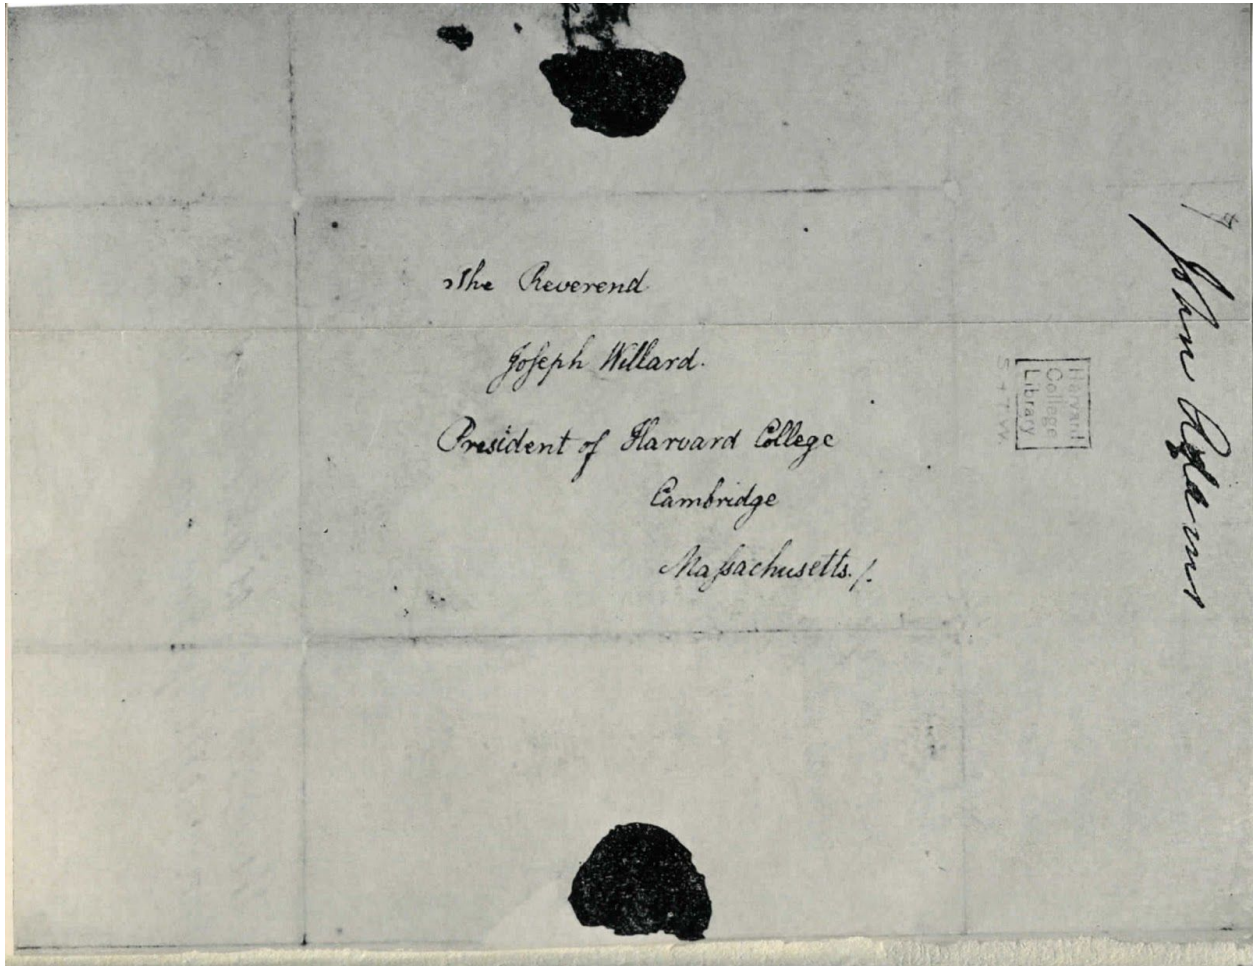 The Reverend
Joseph Willard.
President of Harvard College
Cambridge
Massachusetts./.
Harvard
College
Library
John Adams